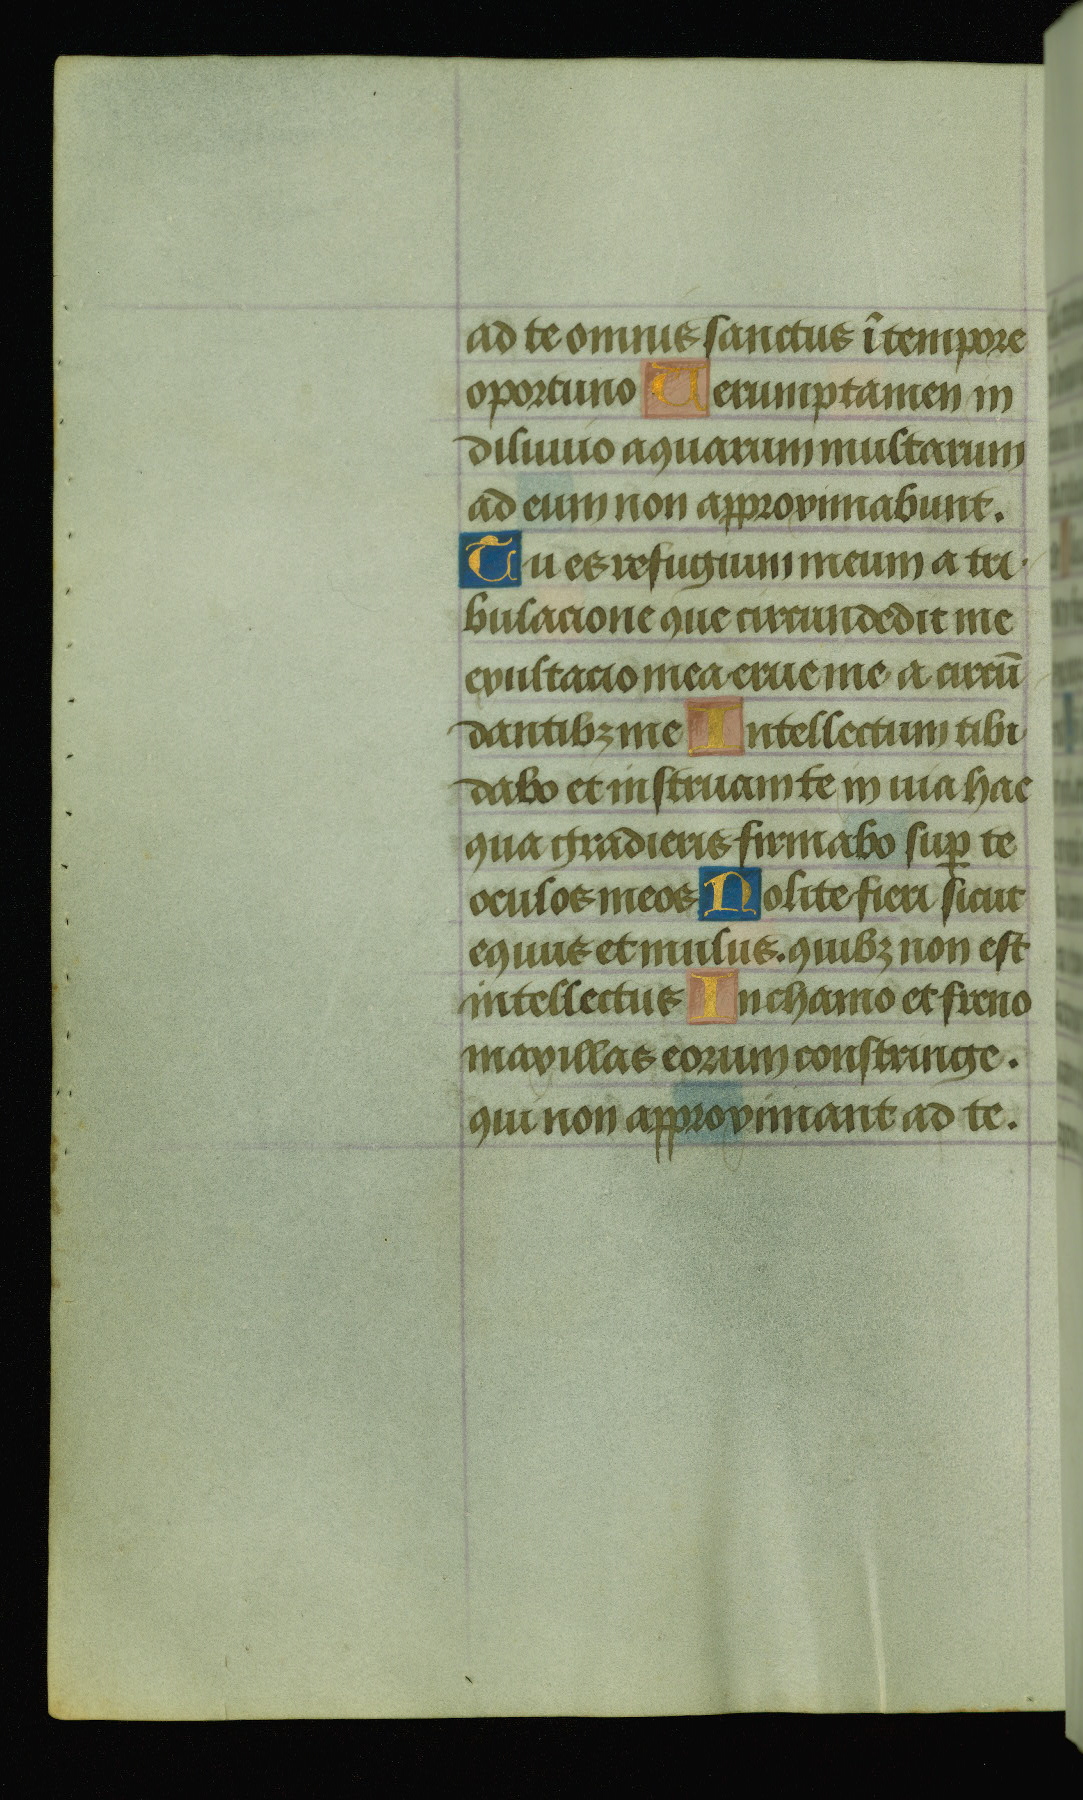 ad te omnis sanctus ī tempore
oportuno Uerumptamen in
diluuio aquarum multarum
ad eum non approximabunt.
Tu es refugium meum a tri
bulacione que circundedit me
exultacio mea erue me a circū
dantibꝫ me Intellectum tibi
dabo et instruam te in uia hac
qua gradieris firmabo suꝑ te
oculos meos Nolite fieri sicut
equus et mulus. quibꝫ non est
intellectus In chamo et freno
maxillas eorum constringe.
qui non approximant ad te.